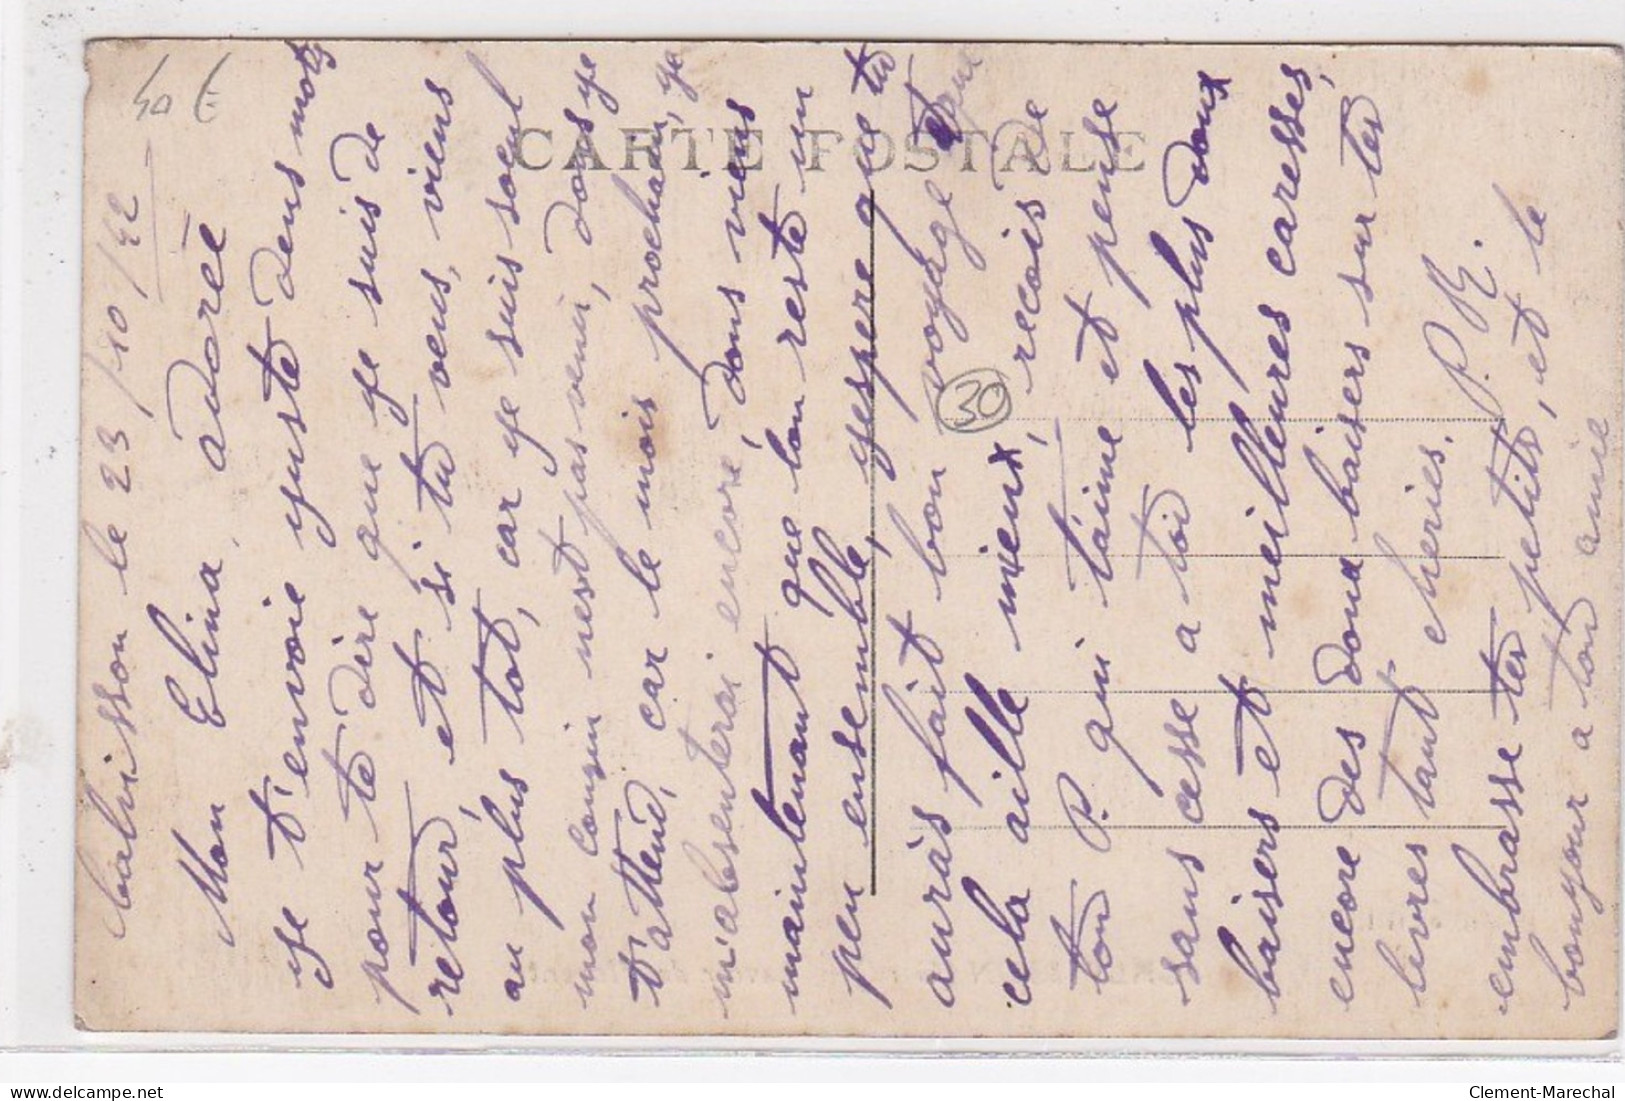 Calvisson le 23/10/42
Mon Elina, adoreé
je t'envoie juste deux mots
pour te dire que je suis de
retour, et si tu veus, viens
au plus tot, car je suis seul
mon cousin nest pas venu, dons je
t'attend, car le mois prochain, je
m'absenterai encore, dons viens
maintenant que lon reste un
peu ensemble, jespere que tu
auras fait bon voyage et que
cela aille mieux, recois de
ton P. qui t'aime et pense
sans cesse a toi les plus doux
baisers et meilleures caresses,
encore des doux baisers sur tes
levres tant cheries. P. R.
embrasse tes petits, et le
bonjour a ton amie
CARTE POSTALE
40 €
30
www.delcampe.net
Clement-Marechal